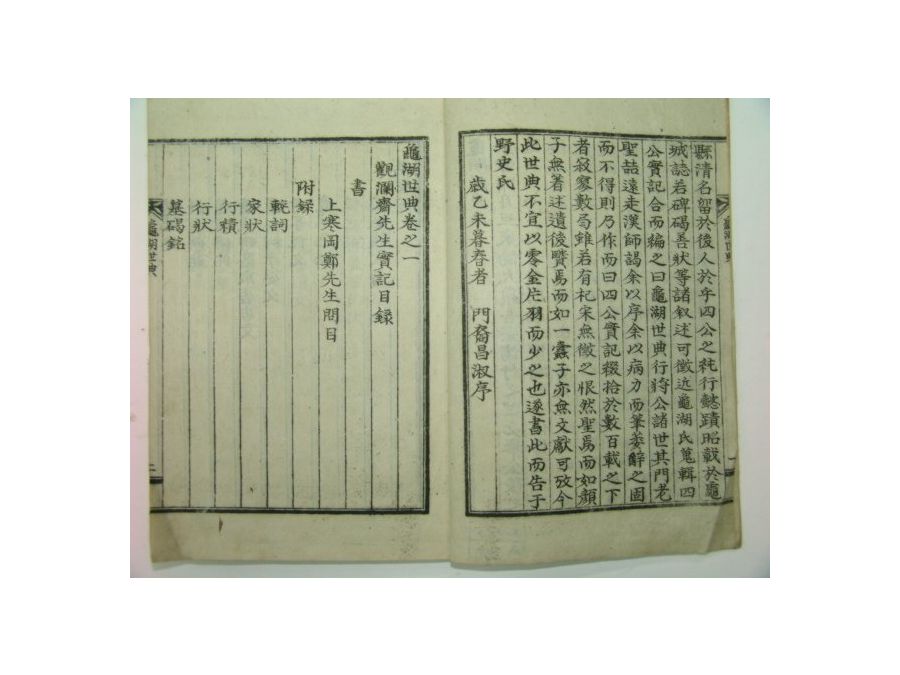 縣清名留於後人於乎四公之純行懿蹟昭載於龜
城誌若碑碣善狀等諸叙述可徵近龜湖氏蒐輯四
公實記合而編之曰龜湖世典行將公諸世其門老
聖喆遠走漢師謁余以序余以病力而筆萎辭之固
而不得則乃作而曰四公實記綴拾於數百載之下
者寂寥數局雖若有杞宋無徵之恨然聖焉而如顏
子無著述遺後賢焉而如一蠹子亦無文獻可攷今
此世典不宜以零金片羽而少之也遂書此而告于
野史氏
歲乙未暮春者 門裔昌淑序
龜湖世典
一
龜湖世典卷之一
觀瀾齋先生實記目録
書
上寒岡鄭先生問目
附録
輓詞
家狀
行積
行狀
墓碣銘
龜湖世典
二